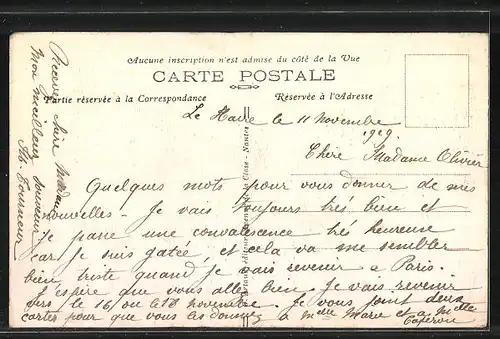 Aucune inscription n'est admise du côté de la Vue
CARTE POSTALE
Partie réservée à la Correspondance
Réservée à l'Adresse
Le Havre 11 Novembre
1909.
Chère Madame Olivier
Quelques mots pour vous donner de mes
nouvelles - Je vais toujours très bien et
je passe une convalescence très heureuse
car je suis gatée, et cela va me sembler
bien triste quand je vais revenir à Paris.
J'espère que vous allez bien. Je vais revenir
vers le 16 ou le 18 novembre. Je vous joint deux
cartes pour que vous les donniez à Melle Marie et à Melle
Recevez chère Madame
Mon meilleur souvenir